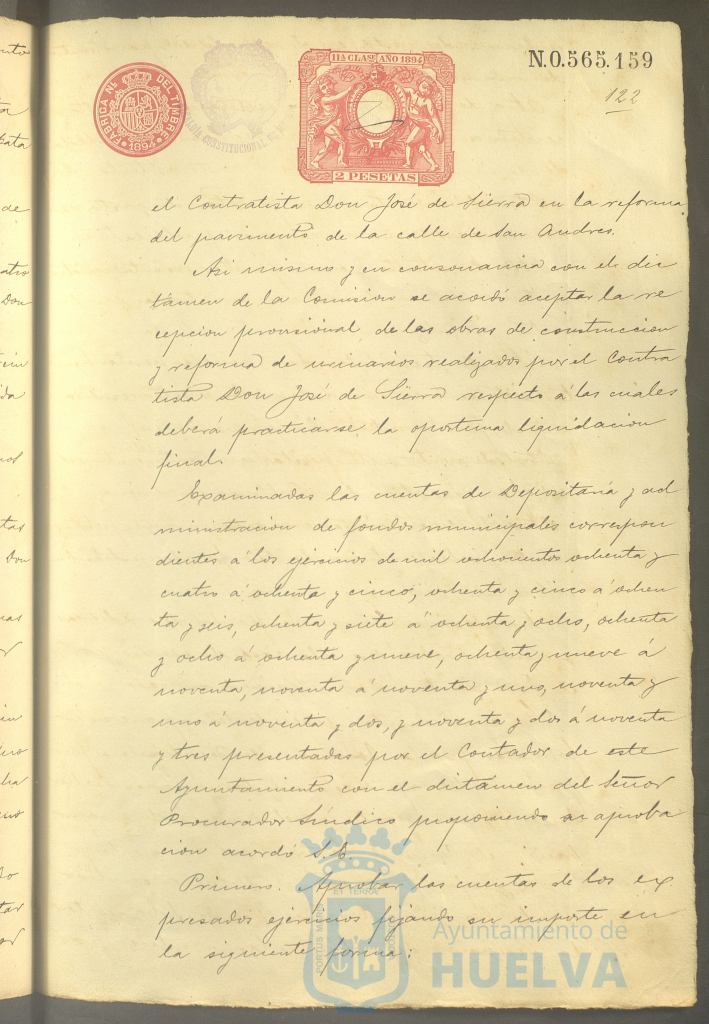 FABRICA Nl. DEL TIMBRE
1894
11ª CLASE AÑO 1894
2 PESETAS
N.0.565.159
122
el Contratista Don José de Sierra en la reforma
del pavimento de la calle de San Andres.
Asi mismo y en consonancia con el dic
támen de la Comision se acordó aceptar la re
cepcion provisional de las obras de construccion
y reforma de urinarios realizados por el Contra
tista Don José de Sierra respecto á las cuales
deberá practicarse la oportuna liquidacion
final.
Examinadas las cuentas de Depositaría y ad
ministracion de fondos municipales correspon
dientes á los ejercicios de mil ochocientos ochenta y
cuatro á ochenta y cinco, ochenta y cinco á ochen
ta y seis, ochenta y siete á ochenta y ocho, ochenta
y ocho á ochenta y nueve, ochenta y nueve á
noventa, noventa á noventa y uno, noventa y
uno á noventa y dos, y noventa y dos á noventa
y tres presentadas por el Contador de este
Ayuntamiento con el dictamen del Señor
Procurador Síndico proponiendo su aproba
cion acordó S. E.
Primero. Aprobar las cuentas de los ex
presados ejercicios fijando su importe en
la siguiente forma:
Ayuntamiento de
HUELVA